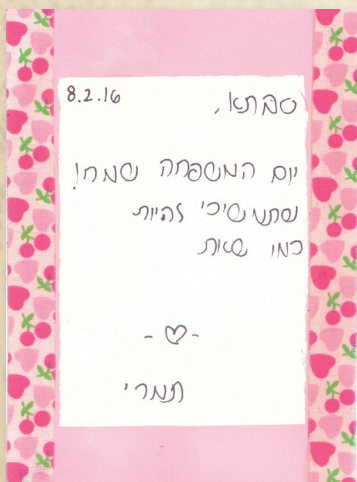 8.2.16
סבתא,
יום המשפחה שמח!
שתמשיכי להיות
כמו שאת
תמרי